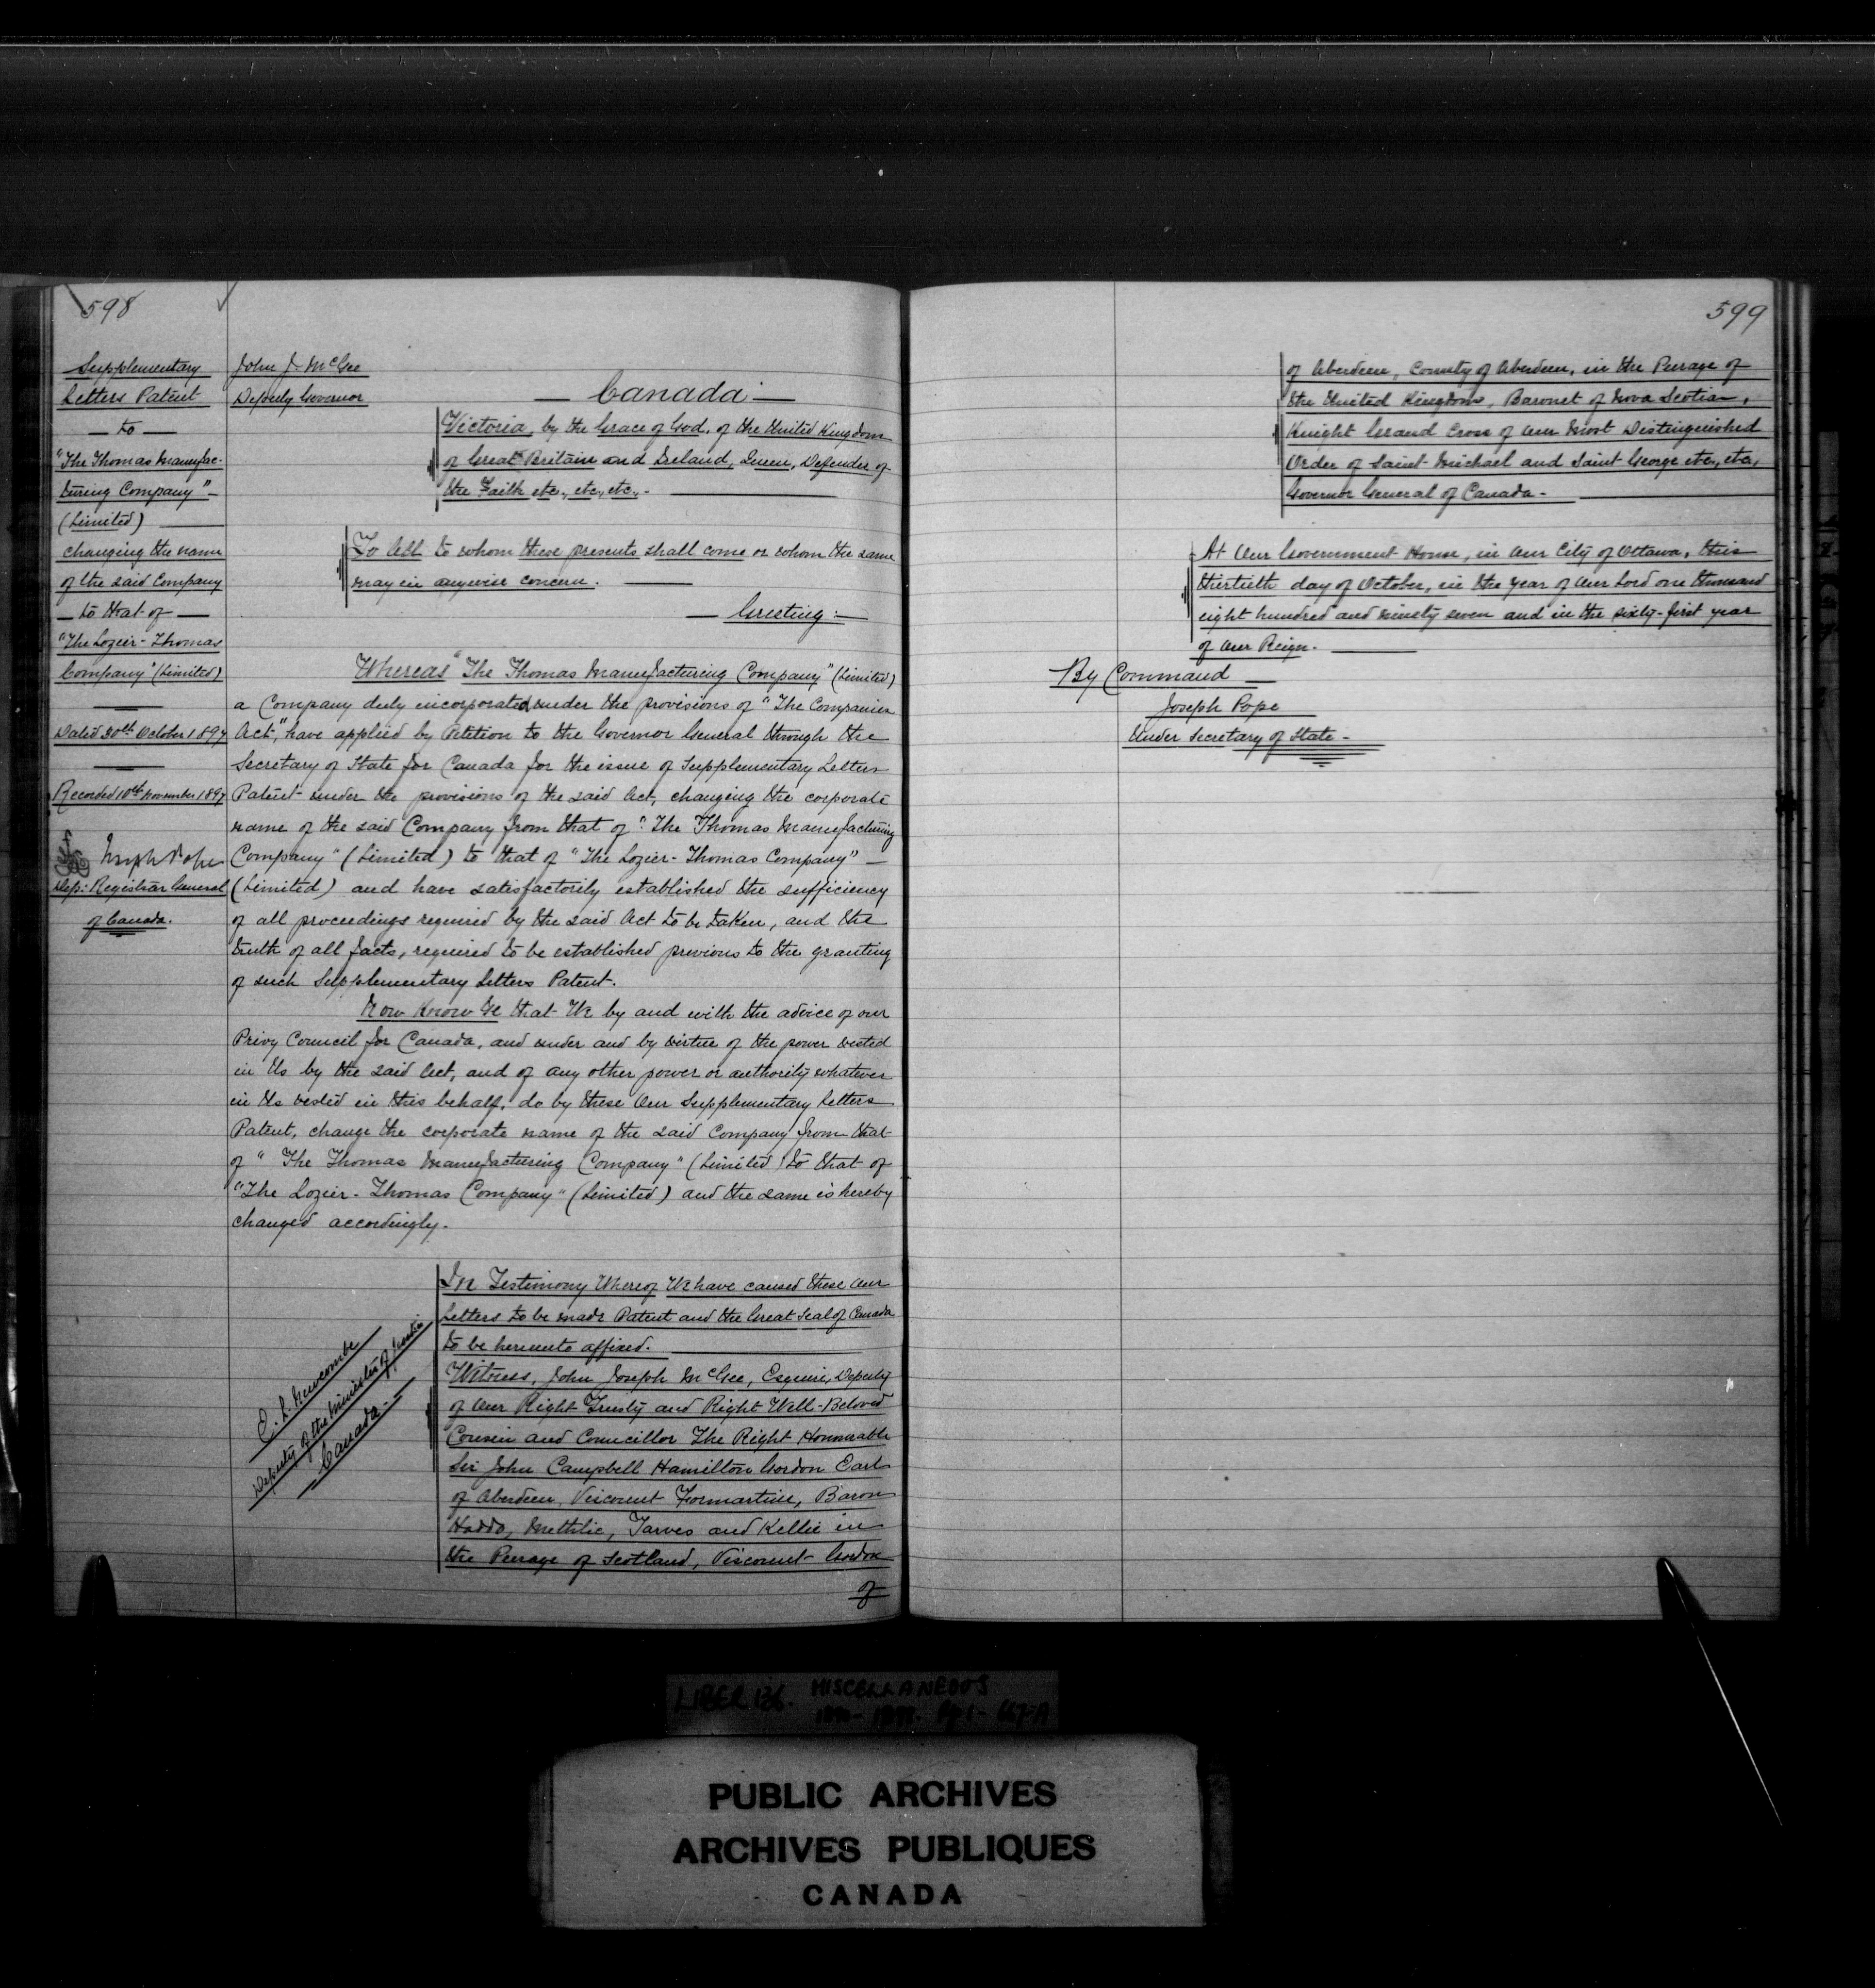 598
Supplementary
Letters Patent
— to —
"The Thomas Manufac-
turing Company" —
(Limited) —
changing the name
of the said Company
— to that of —
"The Lozier-Thomas
Company" (Limited)
Dated 30th October 1897
Recorded 10th November 1897
Joseph Pope
Dep: Registrar General
of Canada.
John J. McGee
Deputy Governor
— Canada —
Victoria, by the Grace of God, of the United Kingdom
of Great Britain and Ireland, Queen, Defender of
the Faith etc., etc., etc. —
To All to whom these presents shall come or whom the same
may in anywise concern. —
— Greeting: —
Whereas "The Thomas Manufacturing Company" (Limited)
a Company duly incorporated under the provisions of "The Companies
Act", have applied by Petition to the Governor General through the
Secretary of State for Canada for the issue of Supplementary Letters
Patent under the provisions of the said Act, changing the corporate
name of the said Company from that of "The Thomas Manufacturing
Company" (Limited) to that of "The Lozier-Thomas Company" —
(Limited) and have satisfactorily established the sufficiency
of all proceedings required by the said Act to be taken, and the
truth of all facts, required to be established previous to the granting
of such Supplementary Letters Patent.
Now Know Ye that We by and with the advice of our
Privy Council for Canada, and under and by virtue of the power vested
in Us by the said Act, and of any other power or authority whatever
in Us vested in this behalf, do by these Our Supplementary Letters
Patent, change the corporate name of the said Company from that
of "The Thomas Manufacturing Company" (Limited) to that of
"The Lozier-Thomas Company" (Limited) and the same is hereby
changed accordingly.
E. L. Newcombe
Deputy of the Minister of Justice
Canada.
In Testimony Whereof We have caused these Our
Letters to be made Patent and the Great Seal of Canada
to be hereunto affixed. —
Witness, John Joseph McGee, Esquire, Deputy
of Our Right Trusty and Right Well-Beloved
Cousin and Councillor The Right Honourable
Sir John Campbell Hamilton Gordon Earl
of Aberdeen, Viscount Formartine, Baron
Haddo, Methlic, Tarves and Kellie in
the Peerage of Scotland, Viscount Gordon
of
599
of Aberdeen, County of Aberdeen, in the Peerage of
the United Kingdom, Baronet of Nova Scotia,
Knight Grand Cross of Our Most Distinguished
Order of Saint Michael and Saint George etc., etc.,
Governor General of Canada. —
At Our Government House, in Our City of Ottawa, this
thirtieth day of October, in the year of Our Lord one thousand
eight hundred and ninety seven and in the sixty-first year
of Our Reign. —
By Command —
Joseph Pope
Under Secretary of State —
LIBER 136. MISCELLANEOUS
PUBLIC ARCHIVES
ARCHIVES PUBLIQUES
CANADA